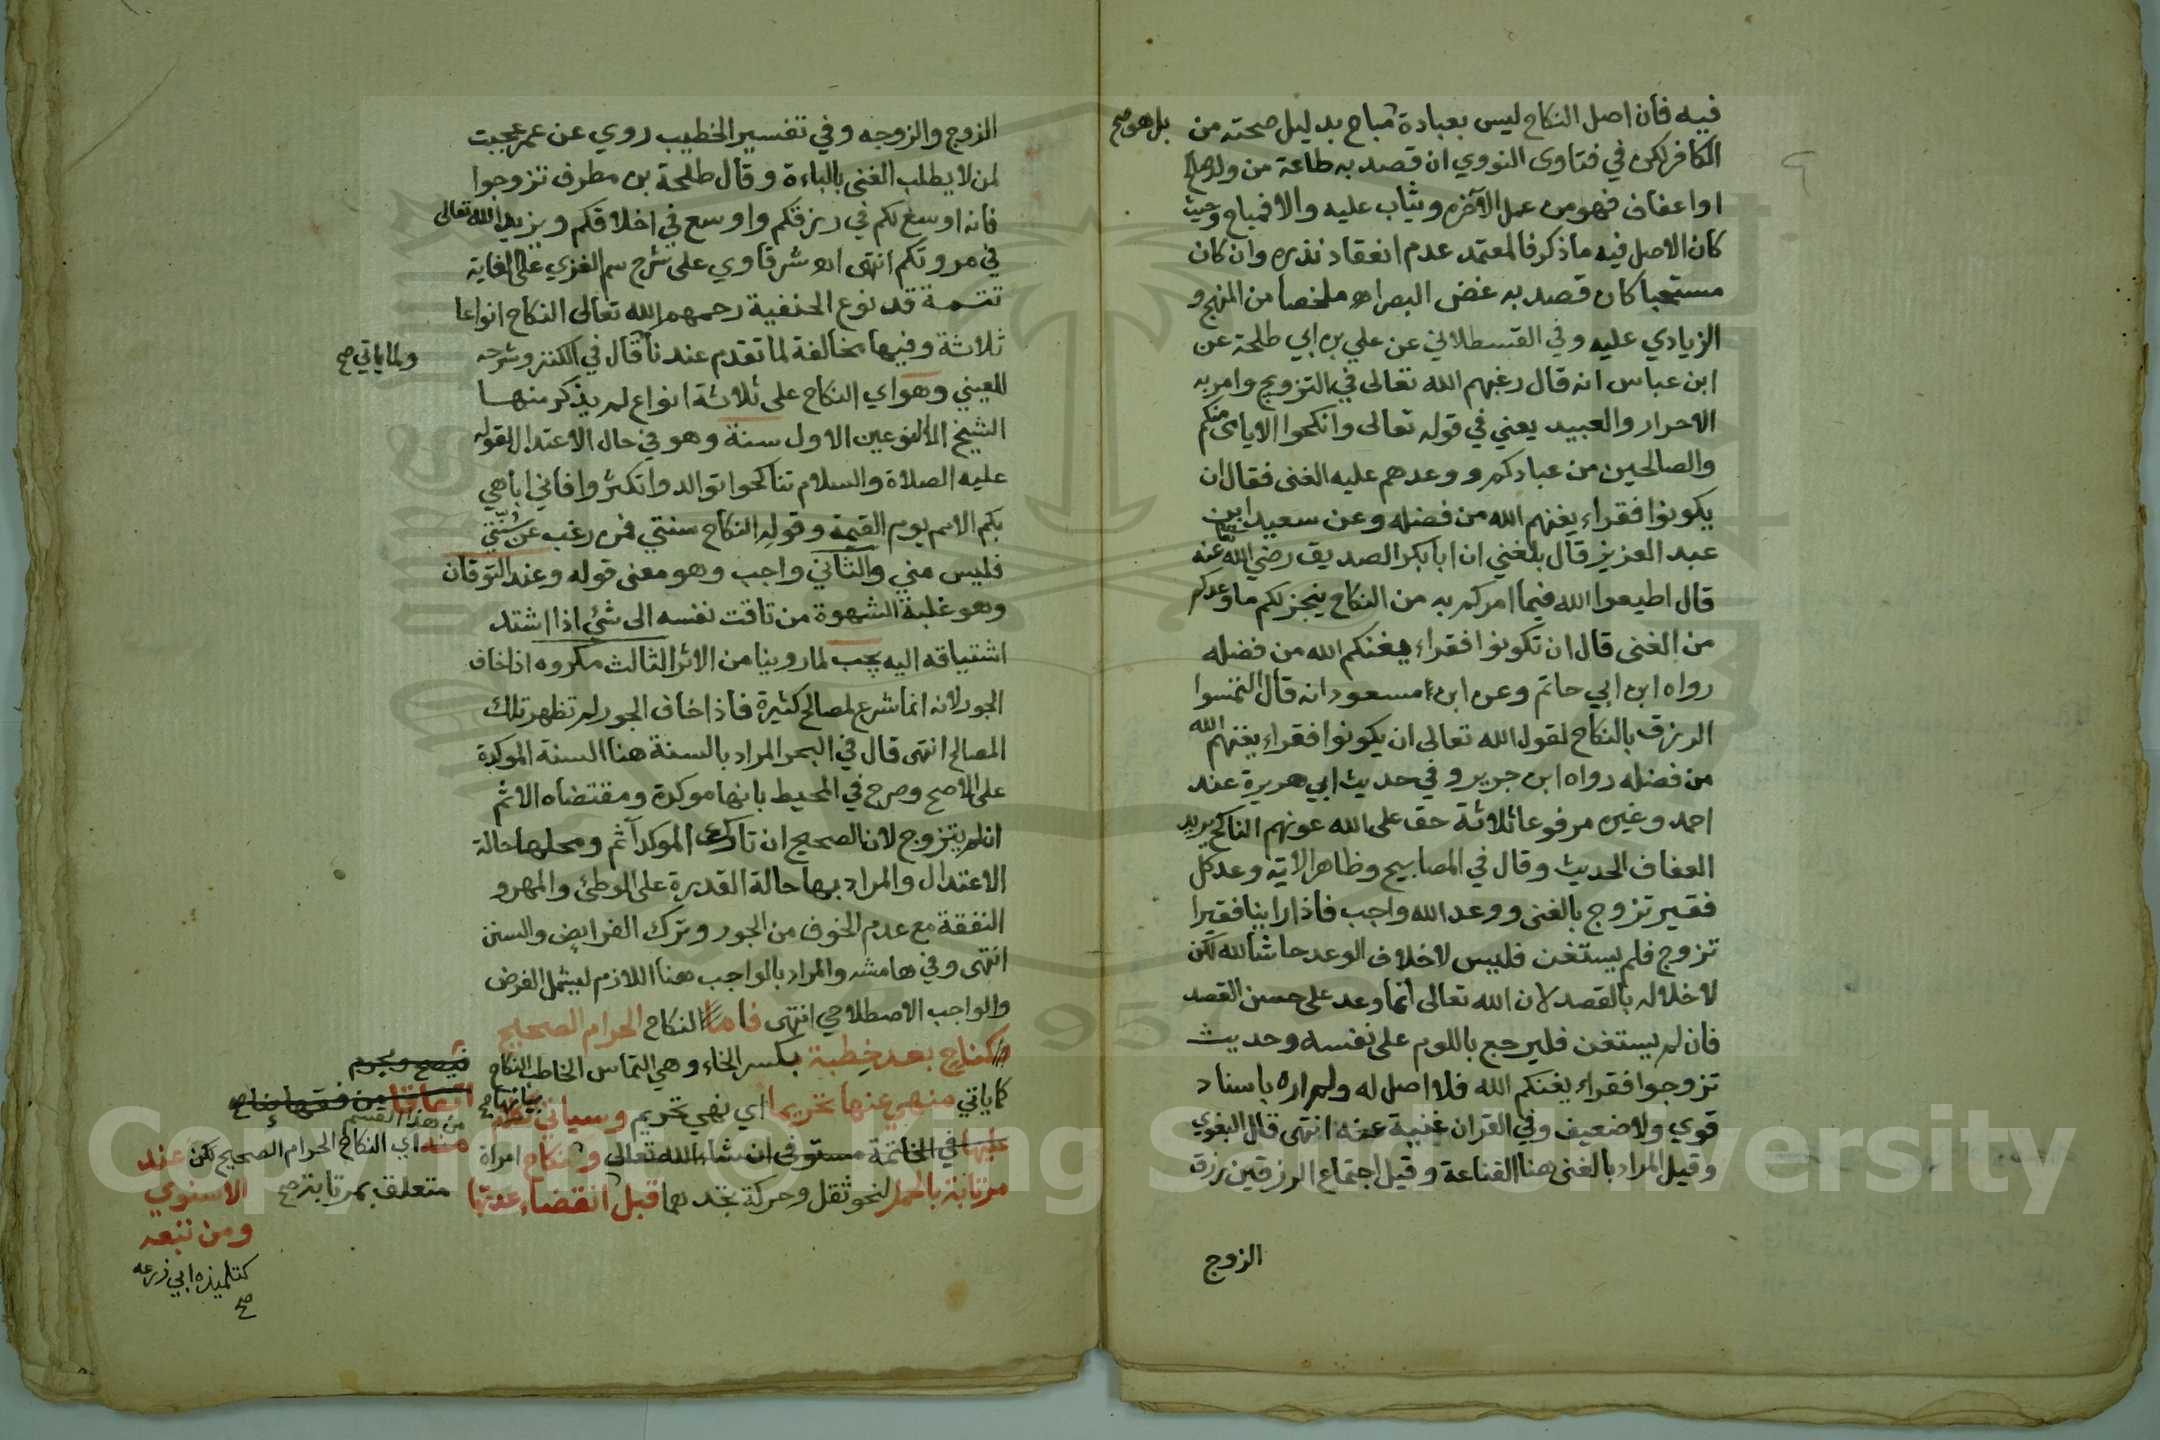 فيه فان اصل النكاح ليس بعبادة مباح بدليل صحته من
بل هو صح
الكافر لكن في فتاوى النووي ان قصد به طاعة من ولد صالح
او اعفاف فهو من عمل الآخرة ويثاب عليه والا فمباح وحيث
كان الاصل فيه ما ذكر فالمعتمد عدم انعقاد نذره وان كان
مستحبا كان قصد به غض البصر اه ملخصا من المنهج و
الزيادي عليه وفي القسطلاني عن علي بن ابي طلحة عن
ابن عباس انه قال رغبهم الله تعالى في التزويج وامر به
الاحرار والعبيد يعني في قوله تعالى وانكحوا الايامى منكم
والصالحين من عبادكم ووعدهم عليه الغنى فقال ان
يكونوا فقراء يغنهم الله من فضله وعن سعيد ابن
عبد العزيز قال بلغني ان ابا بكر الصديق رضي الله عنه
قال اطيعوا الله فيما امركم به من النكاح ينجز لكم ما وعدكم
من الغنى قال ان تكونوا فقراء يغنكم الله من فضله
رواه ابن ابي حاتم وعن ابن مسعود انه قال التمسوا
الرزق بالنكاح لقول الله تعالى ان يكونوا فقراء يغنهم الله
من فضله رواه ابن جرير وفي حديث ابي هريرة عند
احمد وغيره مرفوعا ثلاثة حق على الله عونهم الناكح يريد
العفاف الحديث وقال في المصابيح وظاهر الآية وعد كل
فقير تزوج بالغنى ووعد الله واجب فاذا راينا فقيرا
تزوج فلم يستغن فليس لاخلاف الوعد حاشا لله لكن
لاخلاله بالقصد لان الله تعالى انما وعد على حسن القصد
فان لم يستغن فليرجع باللوم على نفسه وحديث
تزوجوا فقراء يغنكم الله فلا اصل له ولم اره باسناد
قوي ولا ضعيف وفي القران غنية عنه انتهى قال البغوي
وقيل المراد بالغنى هنا القناعة وقيل اجتماع الرزقين رزق
الزوج
الزوج والزوجه وفي تفسير الخطيب روي عن عمر عجبت
لمن لا يطلب الغنى بالباءة وقال طلحة بن مطرف تزوجوا
فانه اوسع لكم في رزقكم واوسع في اخلاقكم ويزيد الله تعالى
في مروتكم انتهى اه شرقاوي على شرح سم الغزي على الغاية
تتمة قد نوع الحنفية رحمهم الله تعالى النكاح انواعا
ثلاثة وفيها مخالفة لما تقدم عندنا قال في الكنز وشرحه
ولما ياتي صح
للعيني وهو اي النكاح على ثلاثة انواع لم يذكر منها
الشيخ الا النوعين الاول سنة وهو في حال الاعتدال لقوله
عليه الصلاة والسلام تناكحوا توالدوا تكثروا فاني اباهي
بكم الامم يوم القيمة وقوله النكاح سنتي فمن رغب عن سنتي
فليس مني والثاني واجب وهو معنى قوله وعند التوقان
وهو غلبة الشهوة من تاقت نفسه الى شئ اذا اشتد
اشتياقه اليه يجب لما روينا من الاثر الثالث مكروه اذا خاف
الجور لانه انما شرع لمصالح كثيرة فاذا خاف الجور لم تظهر تلك
المصالح انتهى قال في البحر المراد بالسنة هنا السنة الموكدة
على الاصح وصرح في المحيط بانها موكدة ومقتضاه الاثم
ان لم يتزوج لان الصحيح ان تارك الموكد آثم ومحلها حالة
الاعتدال والمراد بها حالة القدرة على الوطئ والمهر و
النفقة مع عدم الخوف من الجور وترك الفرايض والسنن
انتهى وفي هامشه والمراد بالواجب هنا اللازم ليشمل الفرض
والواجب الاصطلاحي انتهى فاما النكاح الحرام الصحيح
فكنكاح بعد خطبة بكسر الخاء وهي التماس الخاطب النكاح
كما ياتي منهي عنها تحريما اي نهي تحريم وسياتي
بيانها صح
عليها في الخاتمة مستوفى ان شاء الله تعالى ونكاح امراة
مرتابة بالحمل لنحو ثقل وحركة تجدهما قبل انقضاء عدتها
متعلق بمرتابة صح
فيصح ويحرم
اتفاقا من فقهائنا صح
من هذا القسم
منه اي النكاح الحرام الصحيح لكن عند
الاسنوي
ومن تبعه
كتلميذه ابي زرعه
صح
Copyright © King Saud University
1957